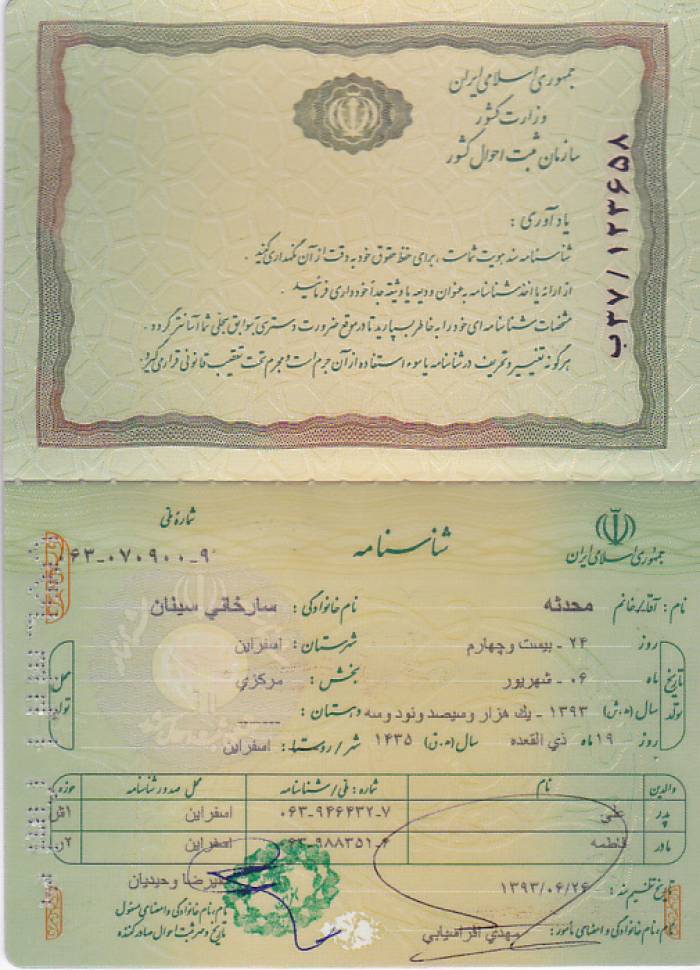 جمهوری اسلامی ایران
وزارت کشور
سازمان ثبت احوال کشور
ب۳۷/۱۲۳۶۵۸
یادآوری :
شناسنامه سند هویت شماست ، برای حفظ حقوق خود به دقت از آن نگهداری کنید .
از ارائه یا اخذ شناسنامه به عنوان ودیعه یا وثیقه جداً خودداری فرمائید .
مشخصات شناسنامه ای خود را به خاطر بسپارید تا در موقع ضرورت دسترسی به سوابق سجلی شما آسانتر گردد .
هرگونه تغییر و تحریف در شناسنامه یا سوء استفاده از آن جرم است و مجرم تحت تعقیب قانونی قرار می گیرد .
جمهوری اسلامی ایران
شناسنامه
شماره ملی
۰۶۳-۰۷۰۹۰۰-۹
نام : آقا/خانم محدثه نام خانوادگی : سارخاني سينان
تاریخ تولد
روز ۲۴ - بيست وچهارم
ماه ۰۶ - شهريور
سال (ه.ش) ۱۳۹۳ - يك هزار وسيصد ونود وسه
روز ۱۹ ماه ذي القعده سال (ه.ق) ۱۴۳۵
محل تولد
شهرستان : اسفراين
بخش : مركزي
دهستان : ــــــ
شهر / روستا : اسفراين
والدین نام شماره : ملی / شناسنامه محل صدور شناسنامه حوزه
پدر علي ۰۶۳-۹۴۶۴۳۲-۷ اسفراين ۱ش
مادر فاطمه ۰۶۳-۹۸۸۳۵۱ اسفراين ۲ر
تاریخ تنظیم سند : ۱۳۹۳/۰۶/۲۶
عليرضا وحيديان
نام ، نام خانوادگی و امضای مسئول
تاریخ و مهر ثبت احوال صادر کننده
نام ، نام خانوادگی و امضای مأمور : مهدي افراسيابي